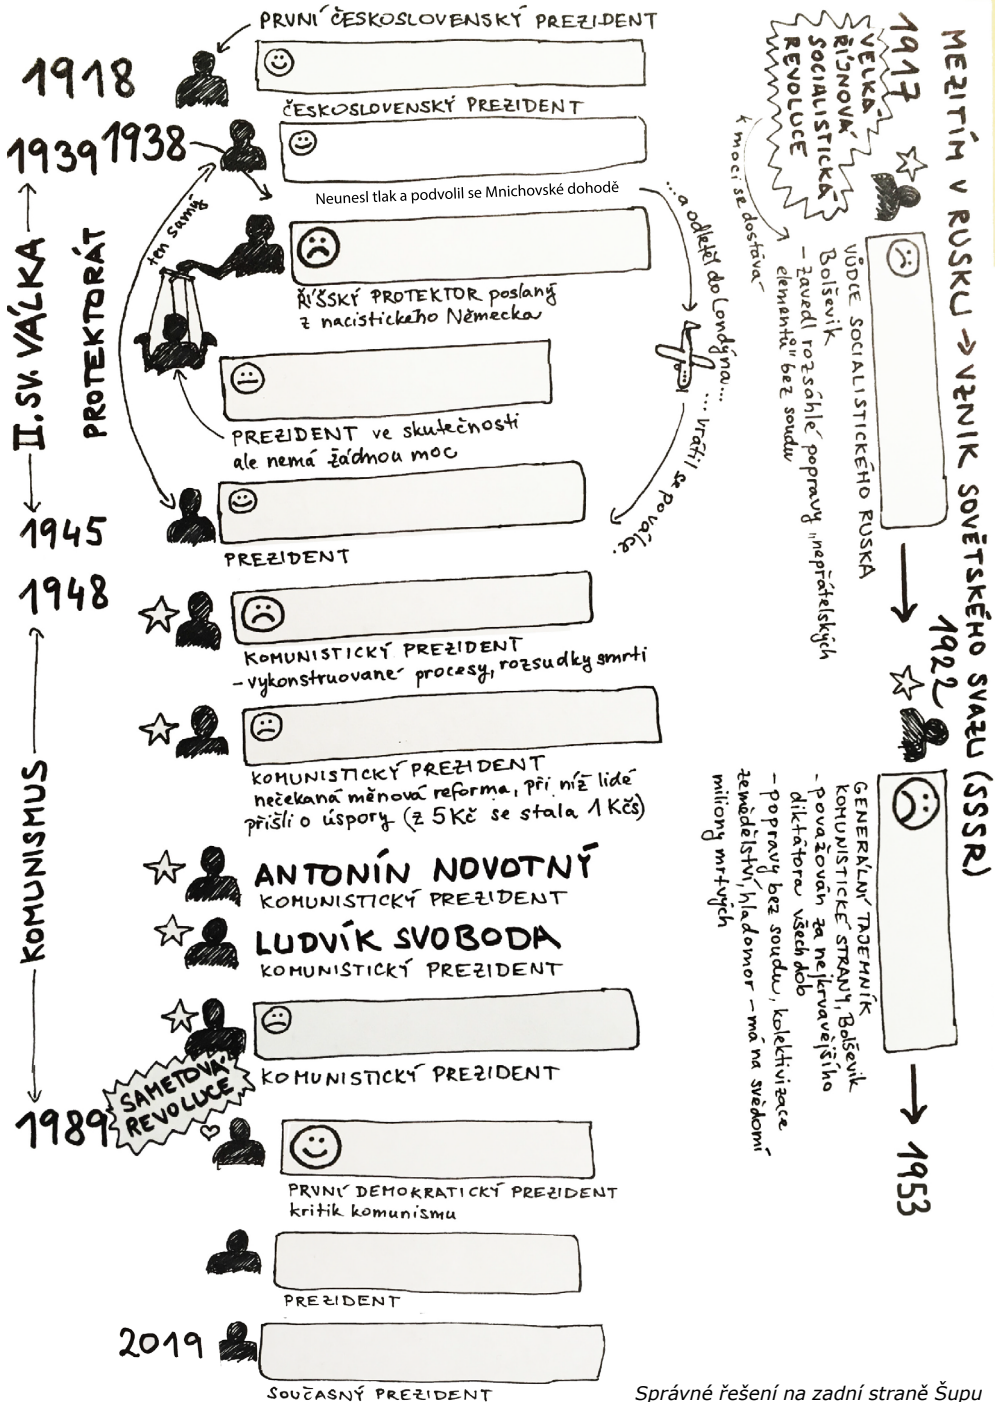 PRVNÍ ČESKOSLOVENSKÝ PREZIDENT
1918
ČESKOSLOVENSKÝ PREZIDENT
1939
1938
Neunesl tlak a podvolil se Mnichovské dohodě
ten samý
...a odletěl do Londýna...
... vrátil se po válce.
II. SV. VÁLKA
PROTEKTORÁT
ŘÍŠSKÝ PROTEKTOR poslaný
z nacistického Německa
PREZIDENT ve skutečnosti
ale nemá žádnou moc
1945
PREZIDENT
1948
KOMUNISTICKÝ PREZIDENT
- vykonstruované procesy, rozsudky smrti
KOMUNISMUS
KOMUNISTICKÝ PREZIDENT
nečekaná měnová reforma, při níž lidé
přišli o úspory (z 5 Kč se stala 1 Kčs)
ANTONÍN NOVOTNÝ
KOMUNISTICKÝ PREZIDENT
LUDVÍK SVOBODA
KOMUNISTICKÝ PREZIDENT
KOMUNISTICKÝ PREZIDENT
SAMETOVÁ
REVOLUCE
1989
PRVNÍ DEMOKRATICKÝ PREZIDENT
kritik komunismu
PREZIDENT
2019
SOUČASNÝ PREZIDENT
MEZITÍM V RUSKU → VZNIK SOVĚTSKÉHO SVAZU (SSSR)
1917
VELKÁ
ŘÍJNOVÁ
SOCIALISTICKÁ
REVOLUCE
k moci se dostává
VŮDCE SOCIALISTICKÉHO RUSKA
Bolševik
- zavedl rozsáhlé popravy „nepřátelských
elementů" bez soudu
1922
GENERÁLNÍ TAJEMNÍK
KOMUNISTICKÉ STRANY, Bolševik
- považován za nejkrvavějšího
diktátora všech dob
- popravy bez soudu, kolektivizace
zemědělství, hladomor - má na svědomí
miliony mrtvých
1953
Správné řešení na zadní straně Šupu